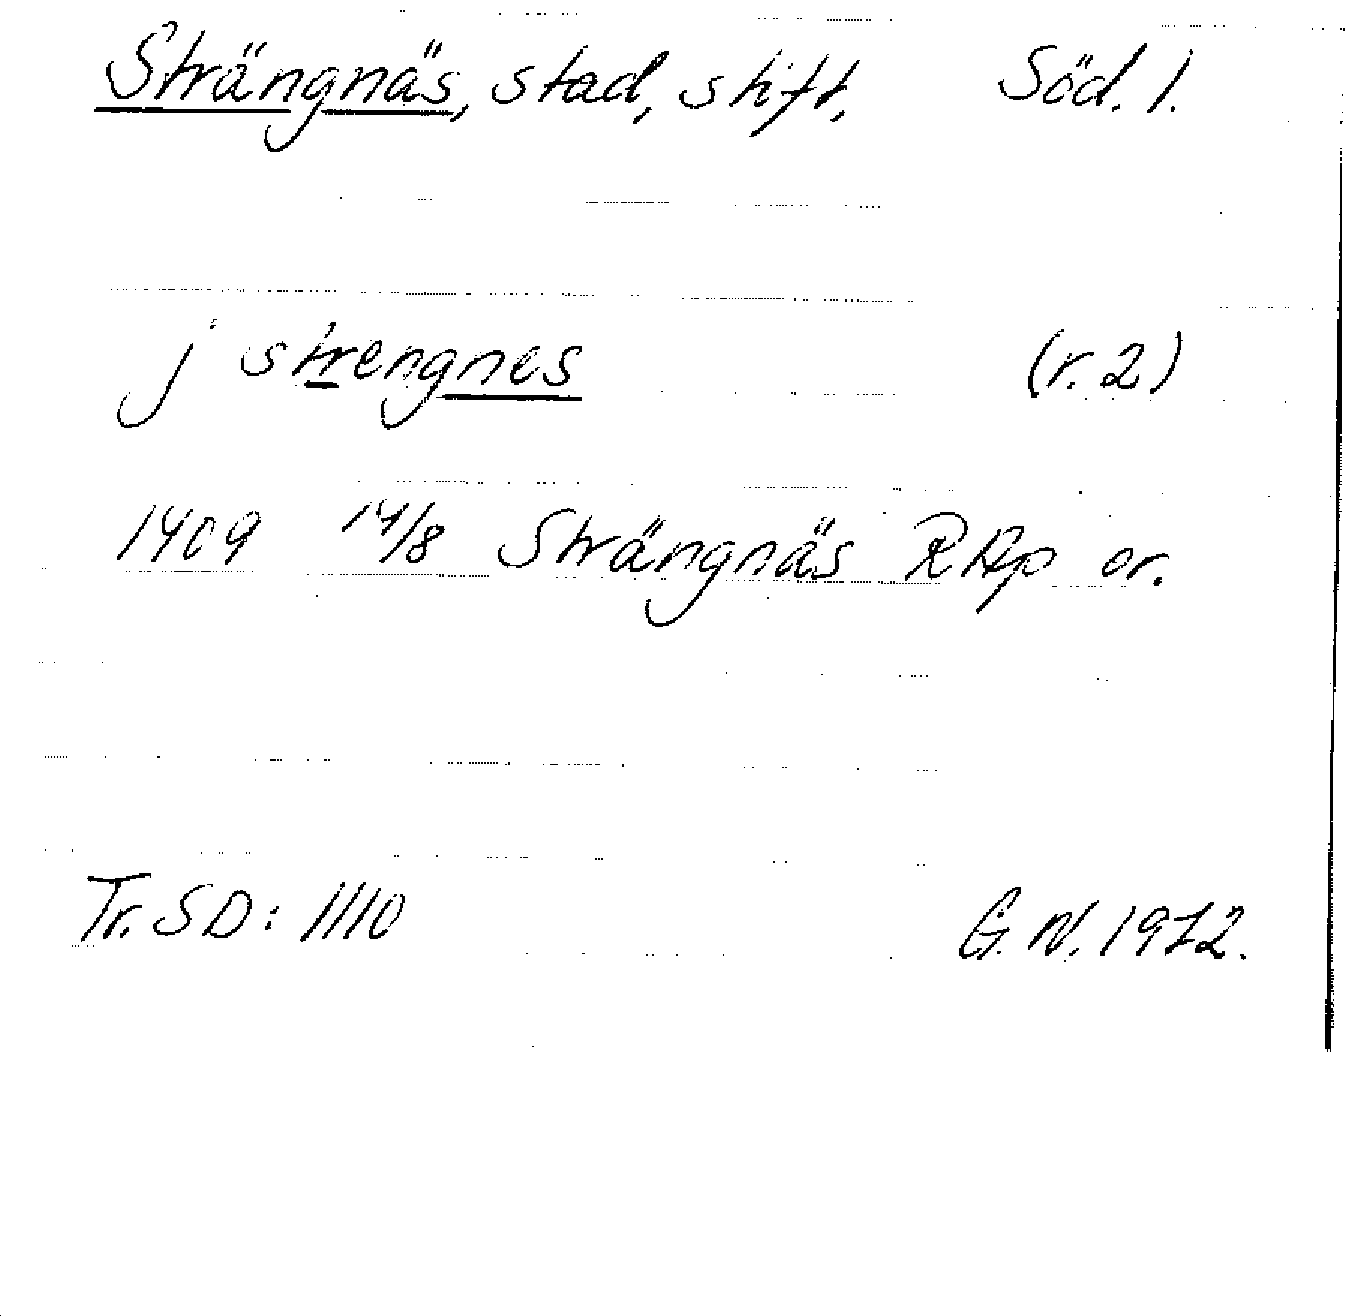 Strängnäs, stad, stift, Söd. l.
j strengnes (r. 2)
1409 14/8 Strängnäs RAp or.
Tr. SD: 1110 G. N. 1972.